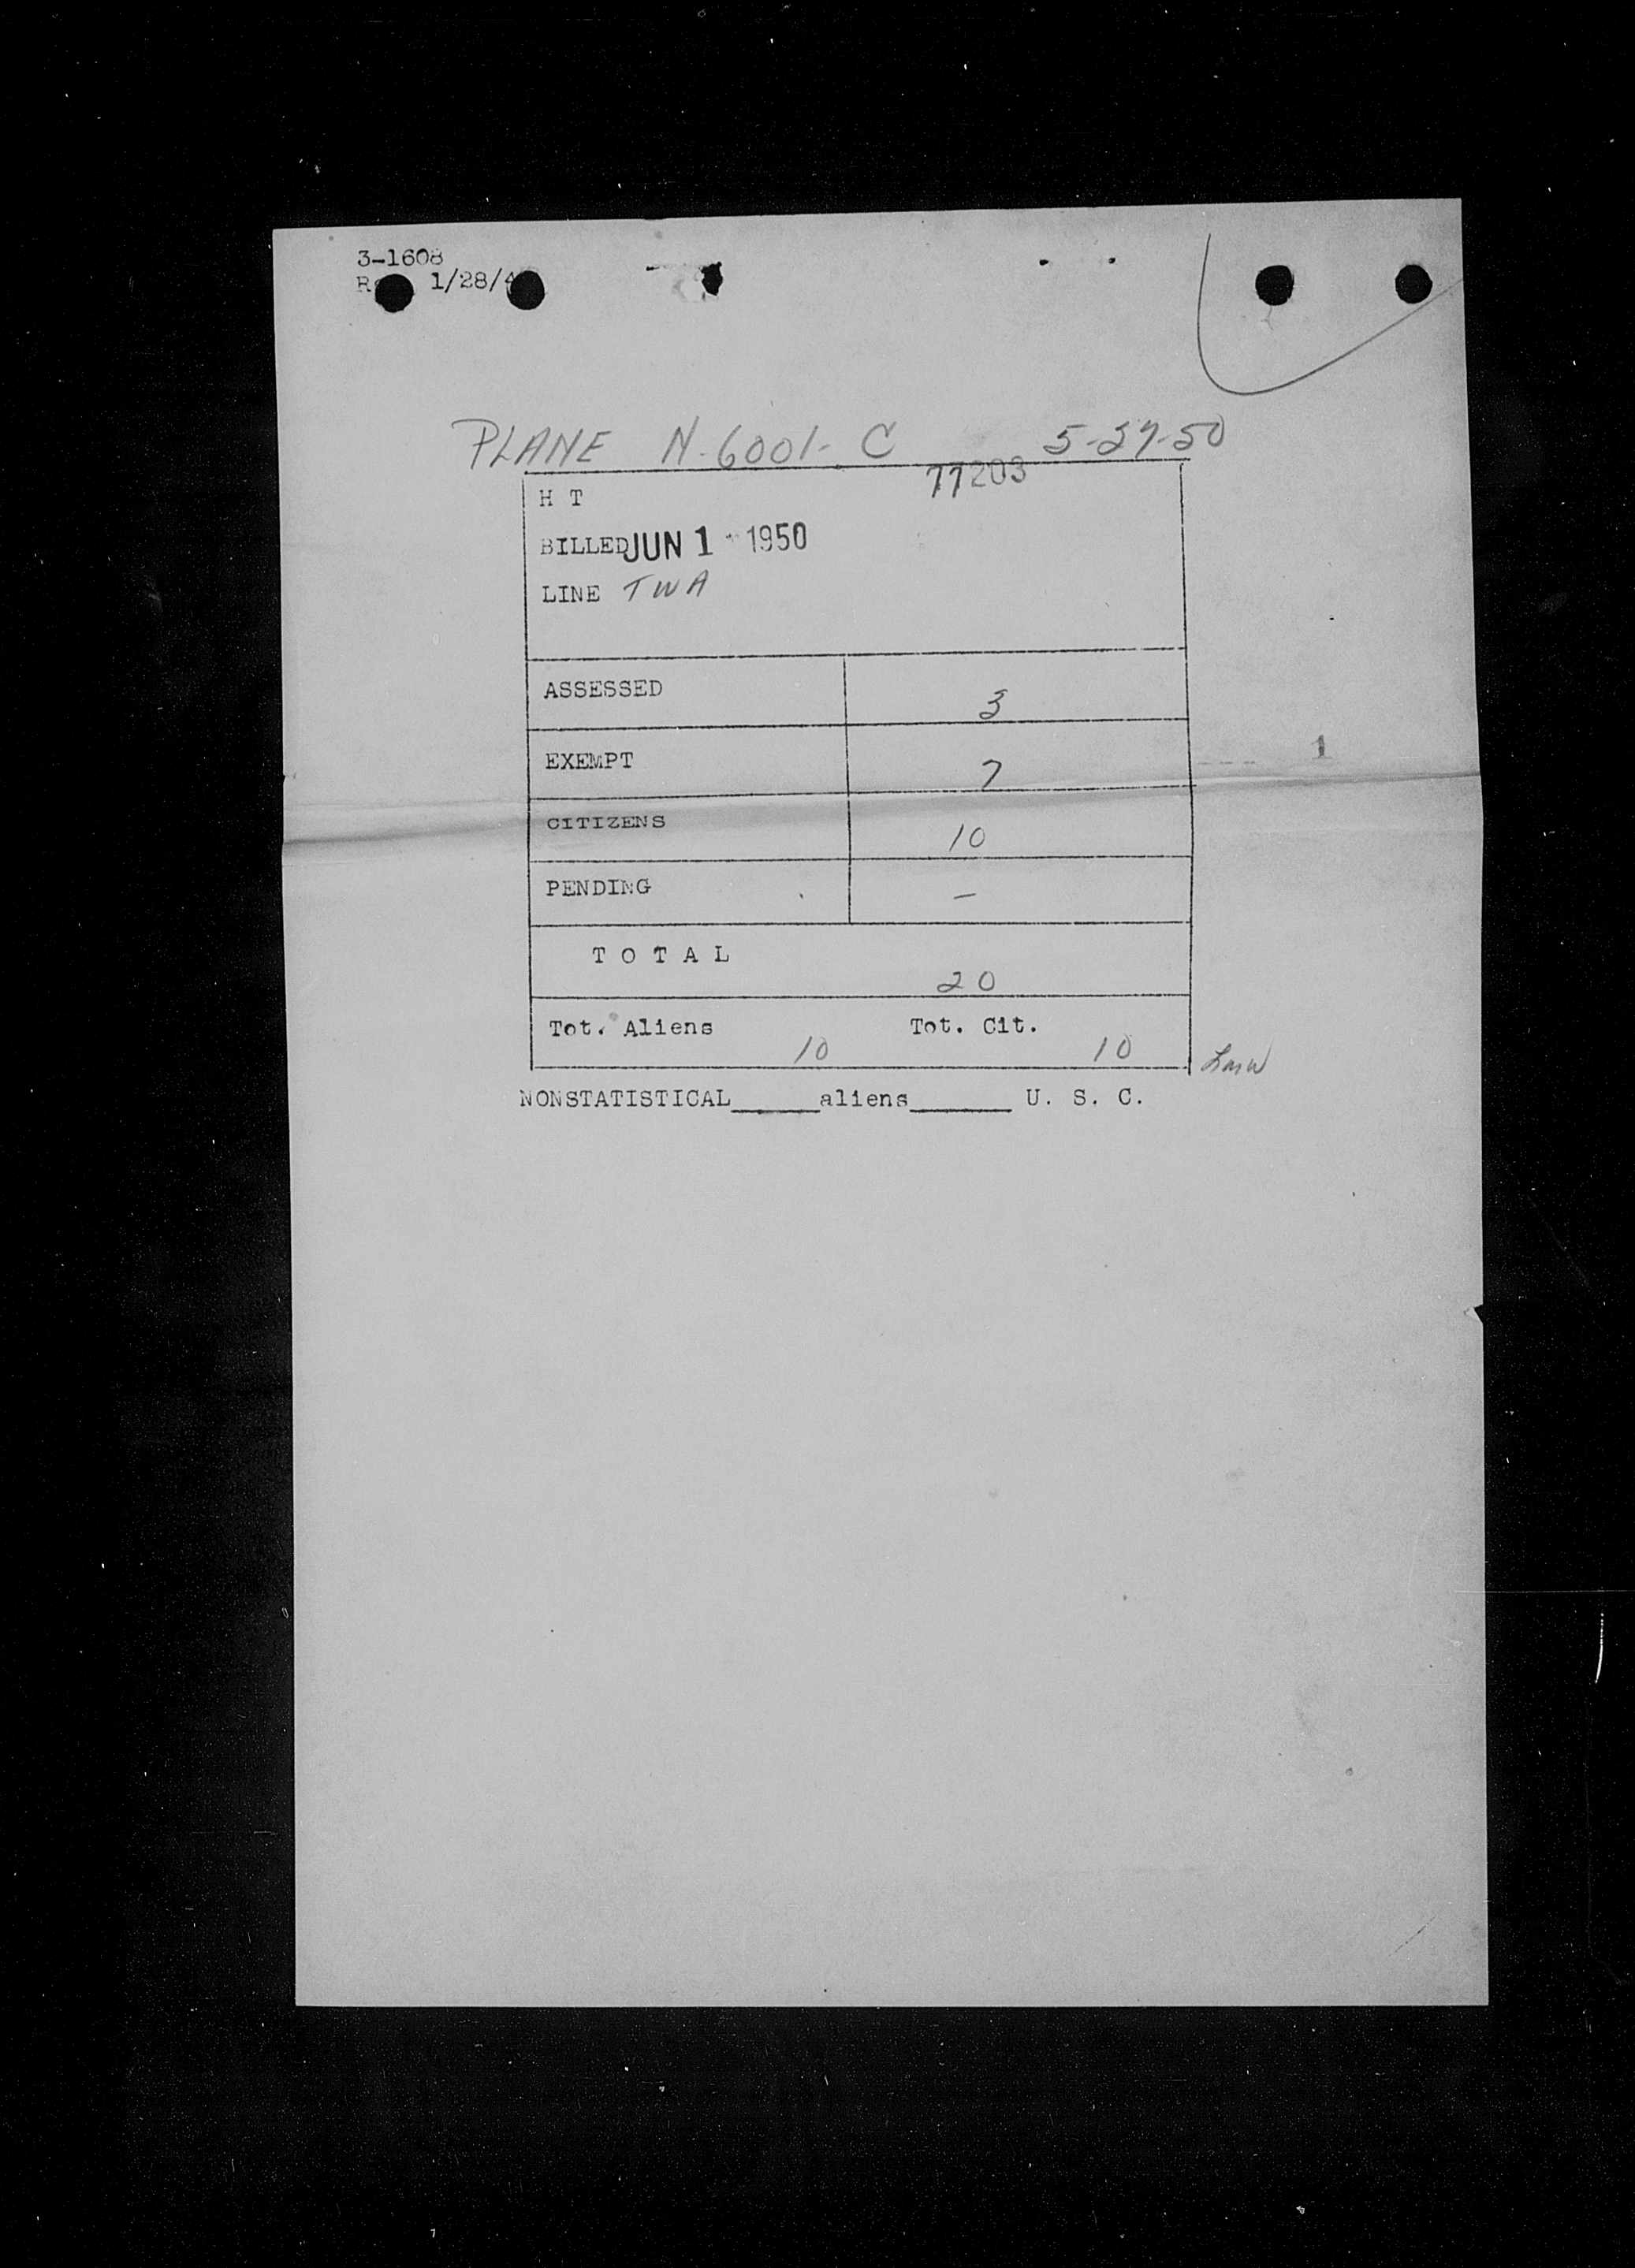 3-1608
1/28/4
PLANE N-6001-C 5-27-50
77203
H T
BILLED JUN 1 1950
LINE TWA
ASSESSED 3
EXEMPT 7
1
CITIZENS 10
PENDING –
T O T A L
20
Tot. Aliens 10 Tot. Cit. 10
LMW
NONSTATISTICAL_____aliens______ U. S. C.